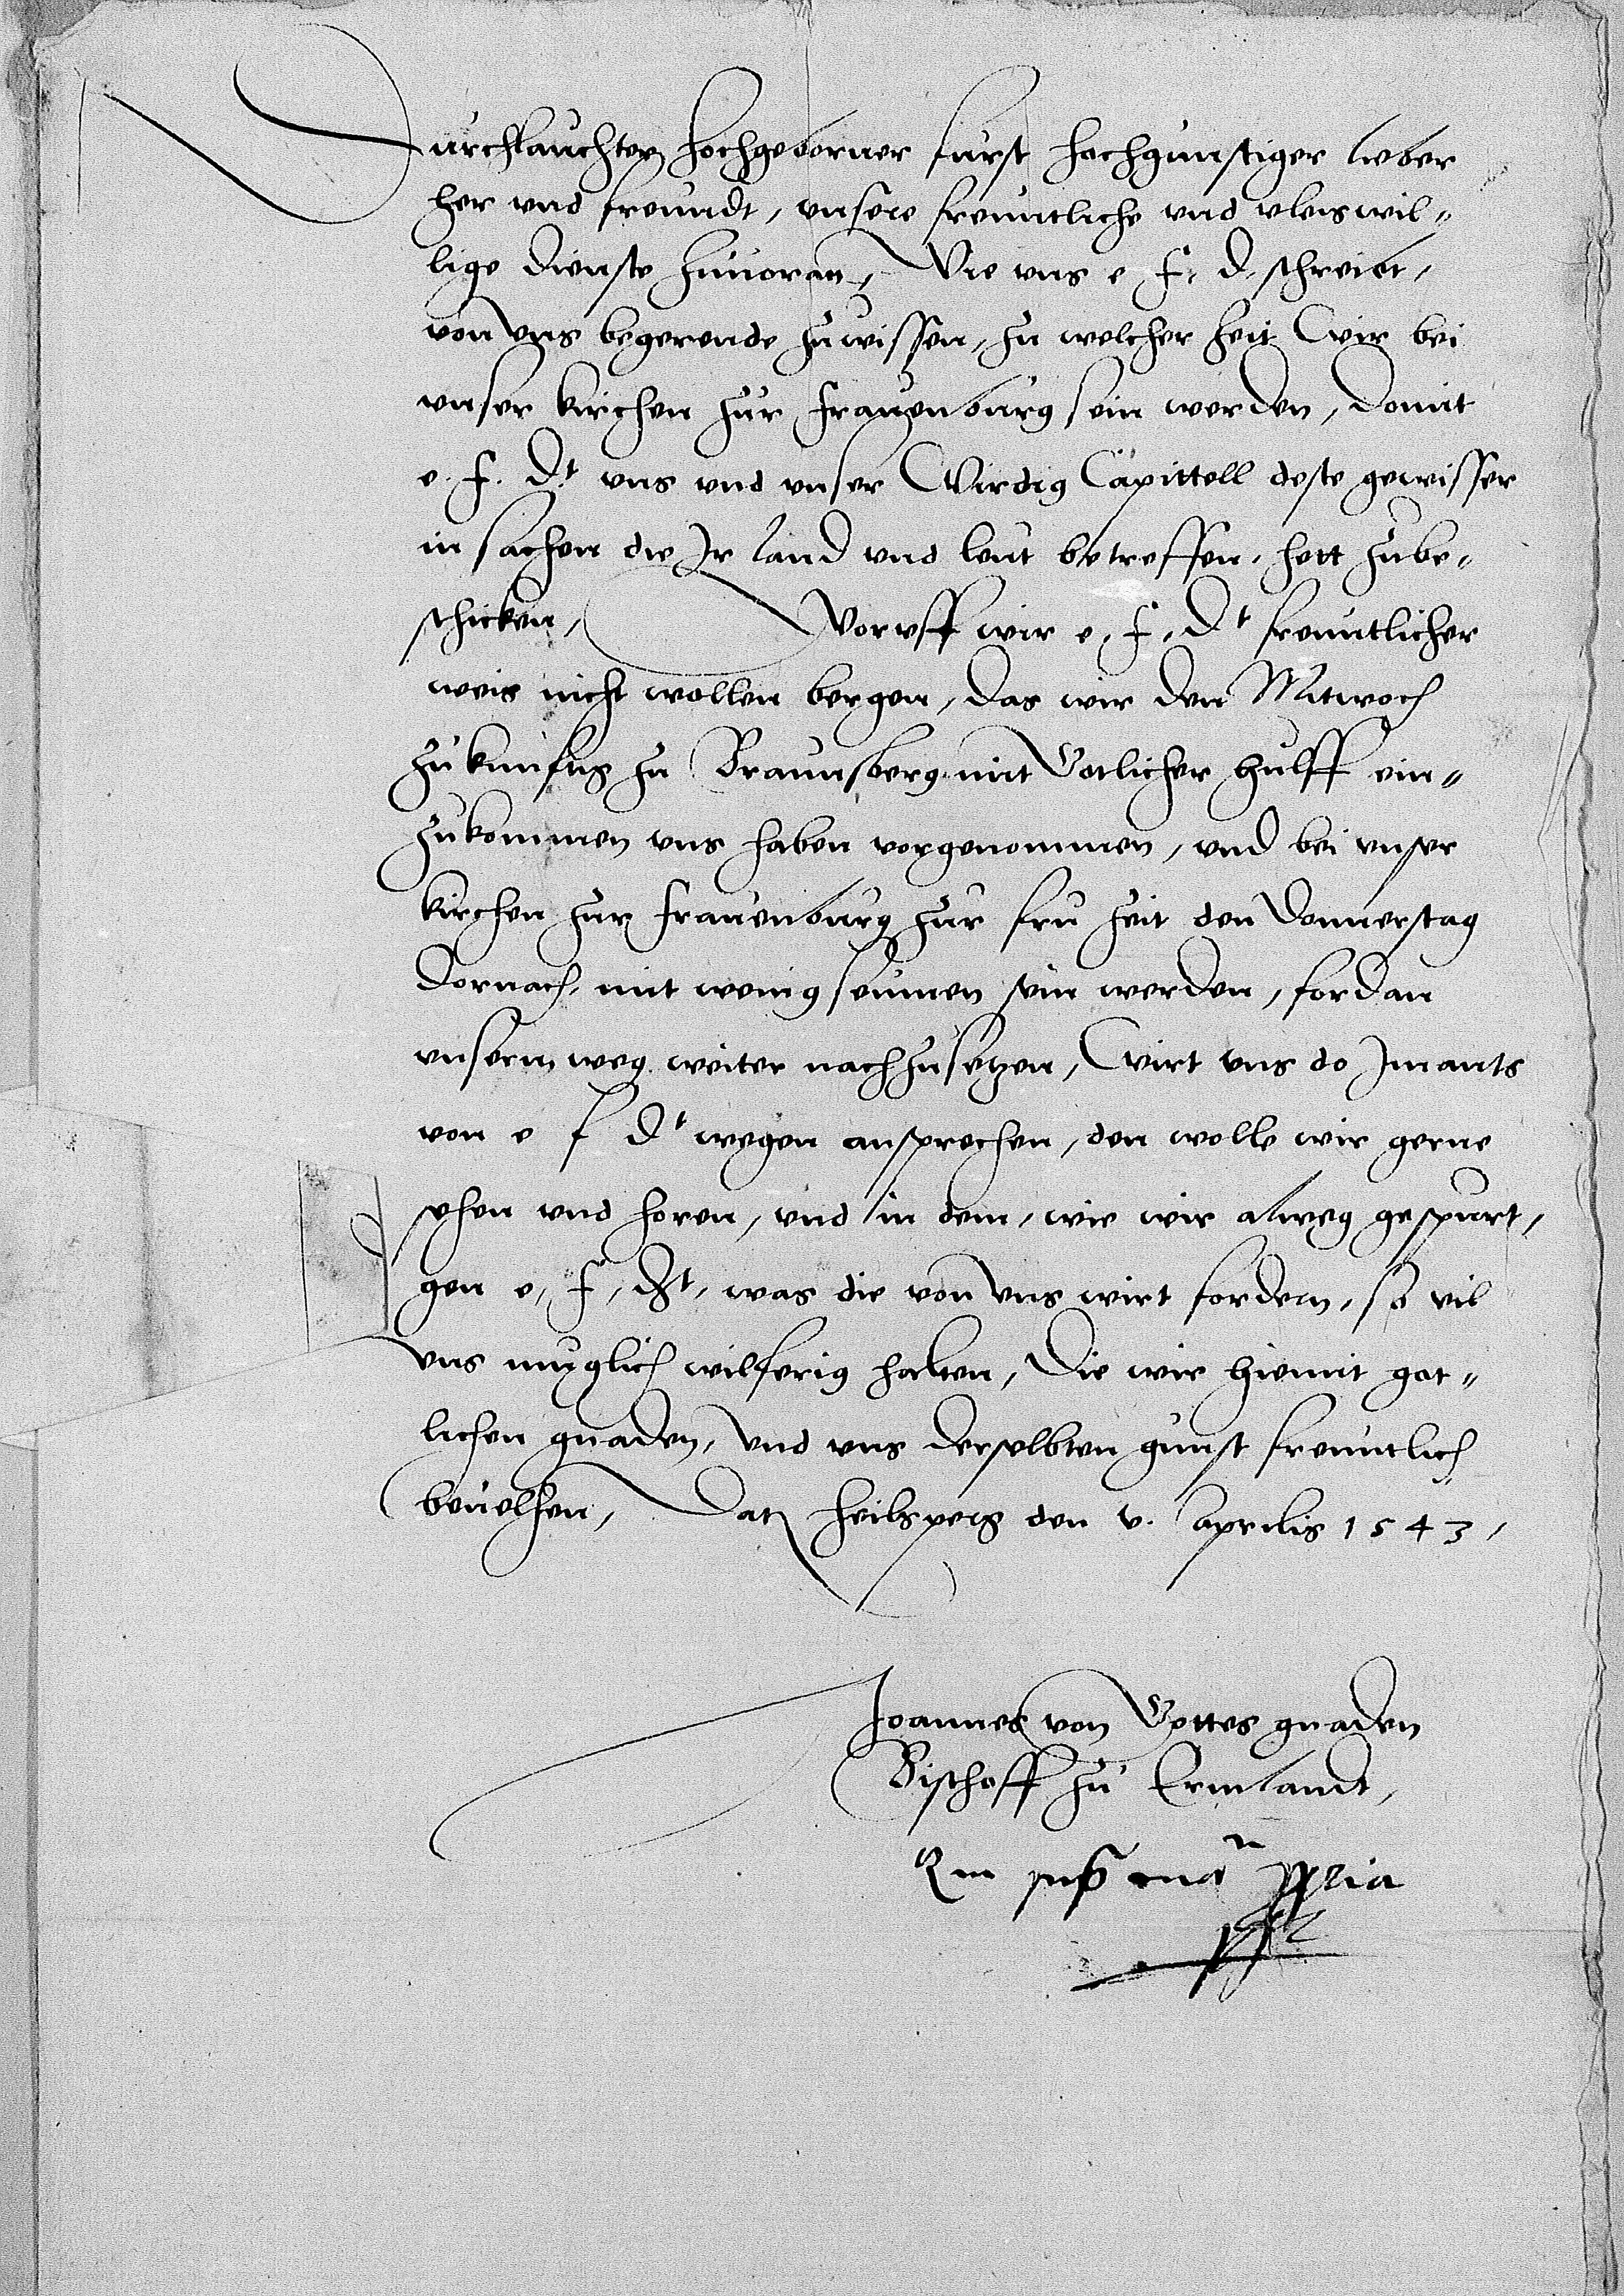 Durchlauchter hochgeborner furst hochgunstiger lieber
her vnd freundt, vnsere freuntliche vnd vleiswil-
lige dienste zuuoran, Wie vns e f. d. schreibt,
von vns begerende zuwissen, zu welcher zeit wir bei
vnser kirchen zur Frauenburg sein werden, domit
e. f. dt vns vnd vnser Wirdig Capittell deste gewisser
in sachen die Ir land vnd leut betreffen, hett zube-
schicken, Woruff wir e. f. dt freuntlicher
weis nicht wollen bergen, das wir den Mitwoch
zukunftig zu Braunsberg mit Gotlicher hulff ein-
zukommen vns haben vorgenommen, vnd bei vnser
kirchen zur Frauenburg zur fru zeit den Donnerstag
dornach mit wenig seumen sein werden, fordan
vnserm weg weiter nachzusetzen, Wirt vns do Imants
von e f dt wegen ansprechen, den wolle wir gerne
sehen vnd horen, vnd in dem, wie wir alweg gespurt,
gen e, f, dt, was die von vns wirt fordern, so vil
vns muglich wilferig halten, Die wir hiemit got-
lichen gnaden, vnd vns derselbten gunst freuntlich
beuelhen, Dat Heilsperg den v. Aprilis 1543,
Joannes von Gottes gnaden
Bischoff zu Ermlandt,
manu ppria